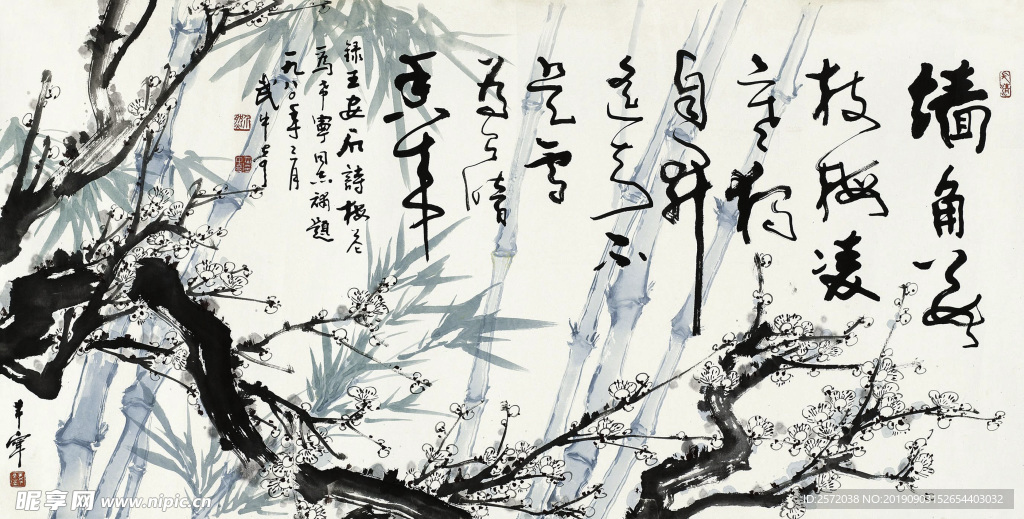 墙角数
枝梅凌
寒独
自开
遥知不
是雪
为有暗
香来
録王安石詩梅花
为半寧同志補題
一九八〇年二月
武中奇
半寧
昵享网 www.nipic.cn
ID:2572038 NO:20190903152654403032